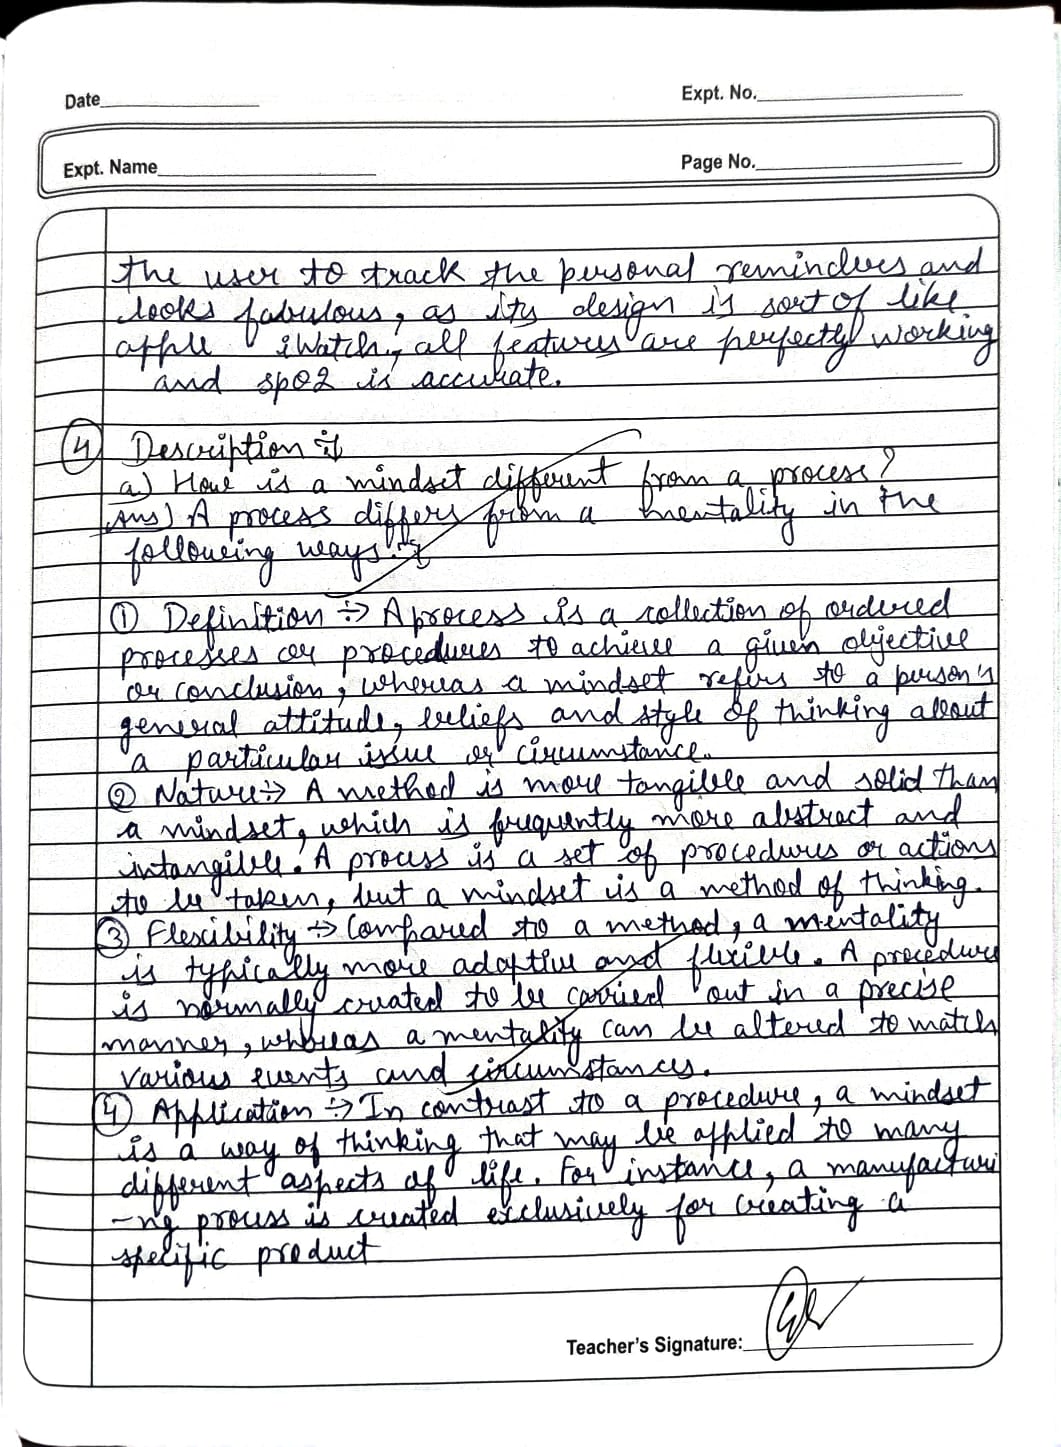 Date
Expt. No.
Expt. Name
Page No.
the user to track the personal reminders and
looks fabulous, as its design is sort of like
apple iWatch, all features are perfectly working
and spo2 is accurate.
4 Description :-
a) How is a mindset different from a process?
Ans) A process differs from a mentality in the
following ways :-
① Definition :-> A process is a collection of ordered
processes or procedures to achieve a given objective
or conclusion, whereas a mindset refers to a person's
general attitude, beliefs and style of thinking about
a particular issue or circumstance.
② Nature :-> A method is more tangible and solid than
a mindset, which is frequently more abstract and
intangible. A process is a set of procedures or actions
to be taken, but a mindset is a method of thinking.
③ Flexibility :-> Compared to a method, a mentality
is typically more adaptive and flexible. A procedure
is normally created to be carried out in a precise
manner, whereas a mentality can be altered to match
various events and circumstances.
④ Application :-> In contrast to a procedure, a mindset
is a way of thinking that may be applied to many
different aspects of life. For instance, a manufacturi
-ng process is created exclusively for creating a
specific product
Teacher's Signature: